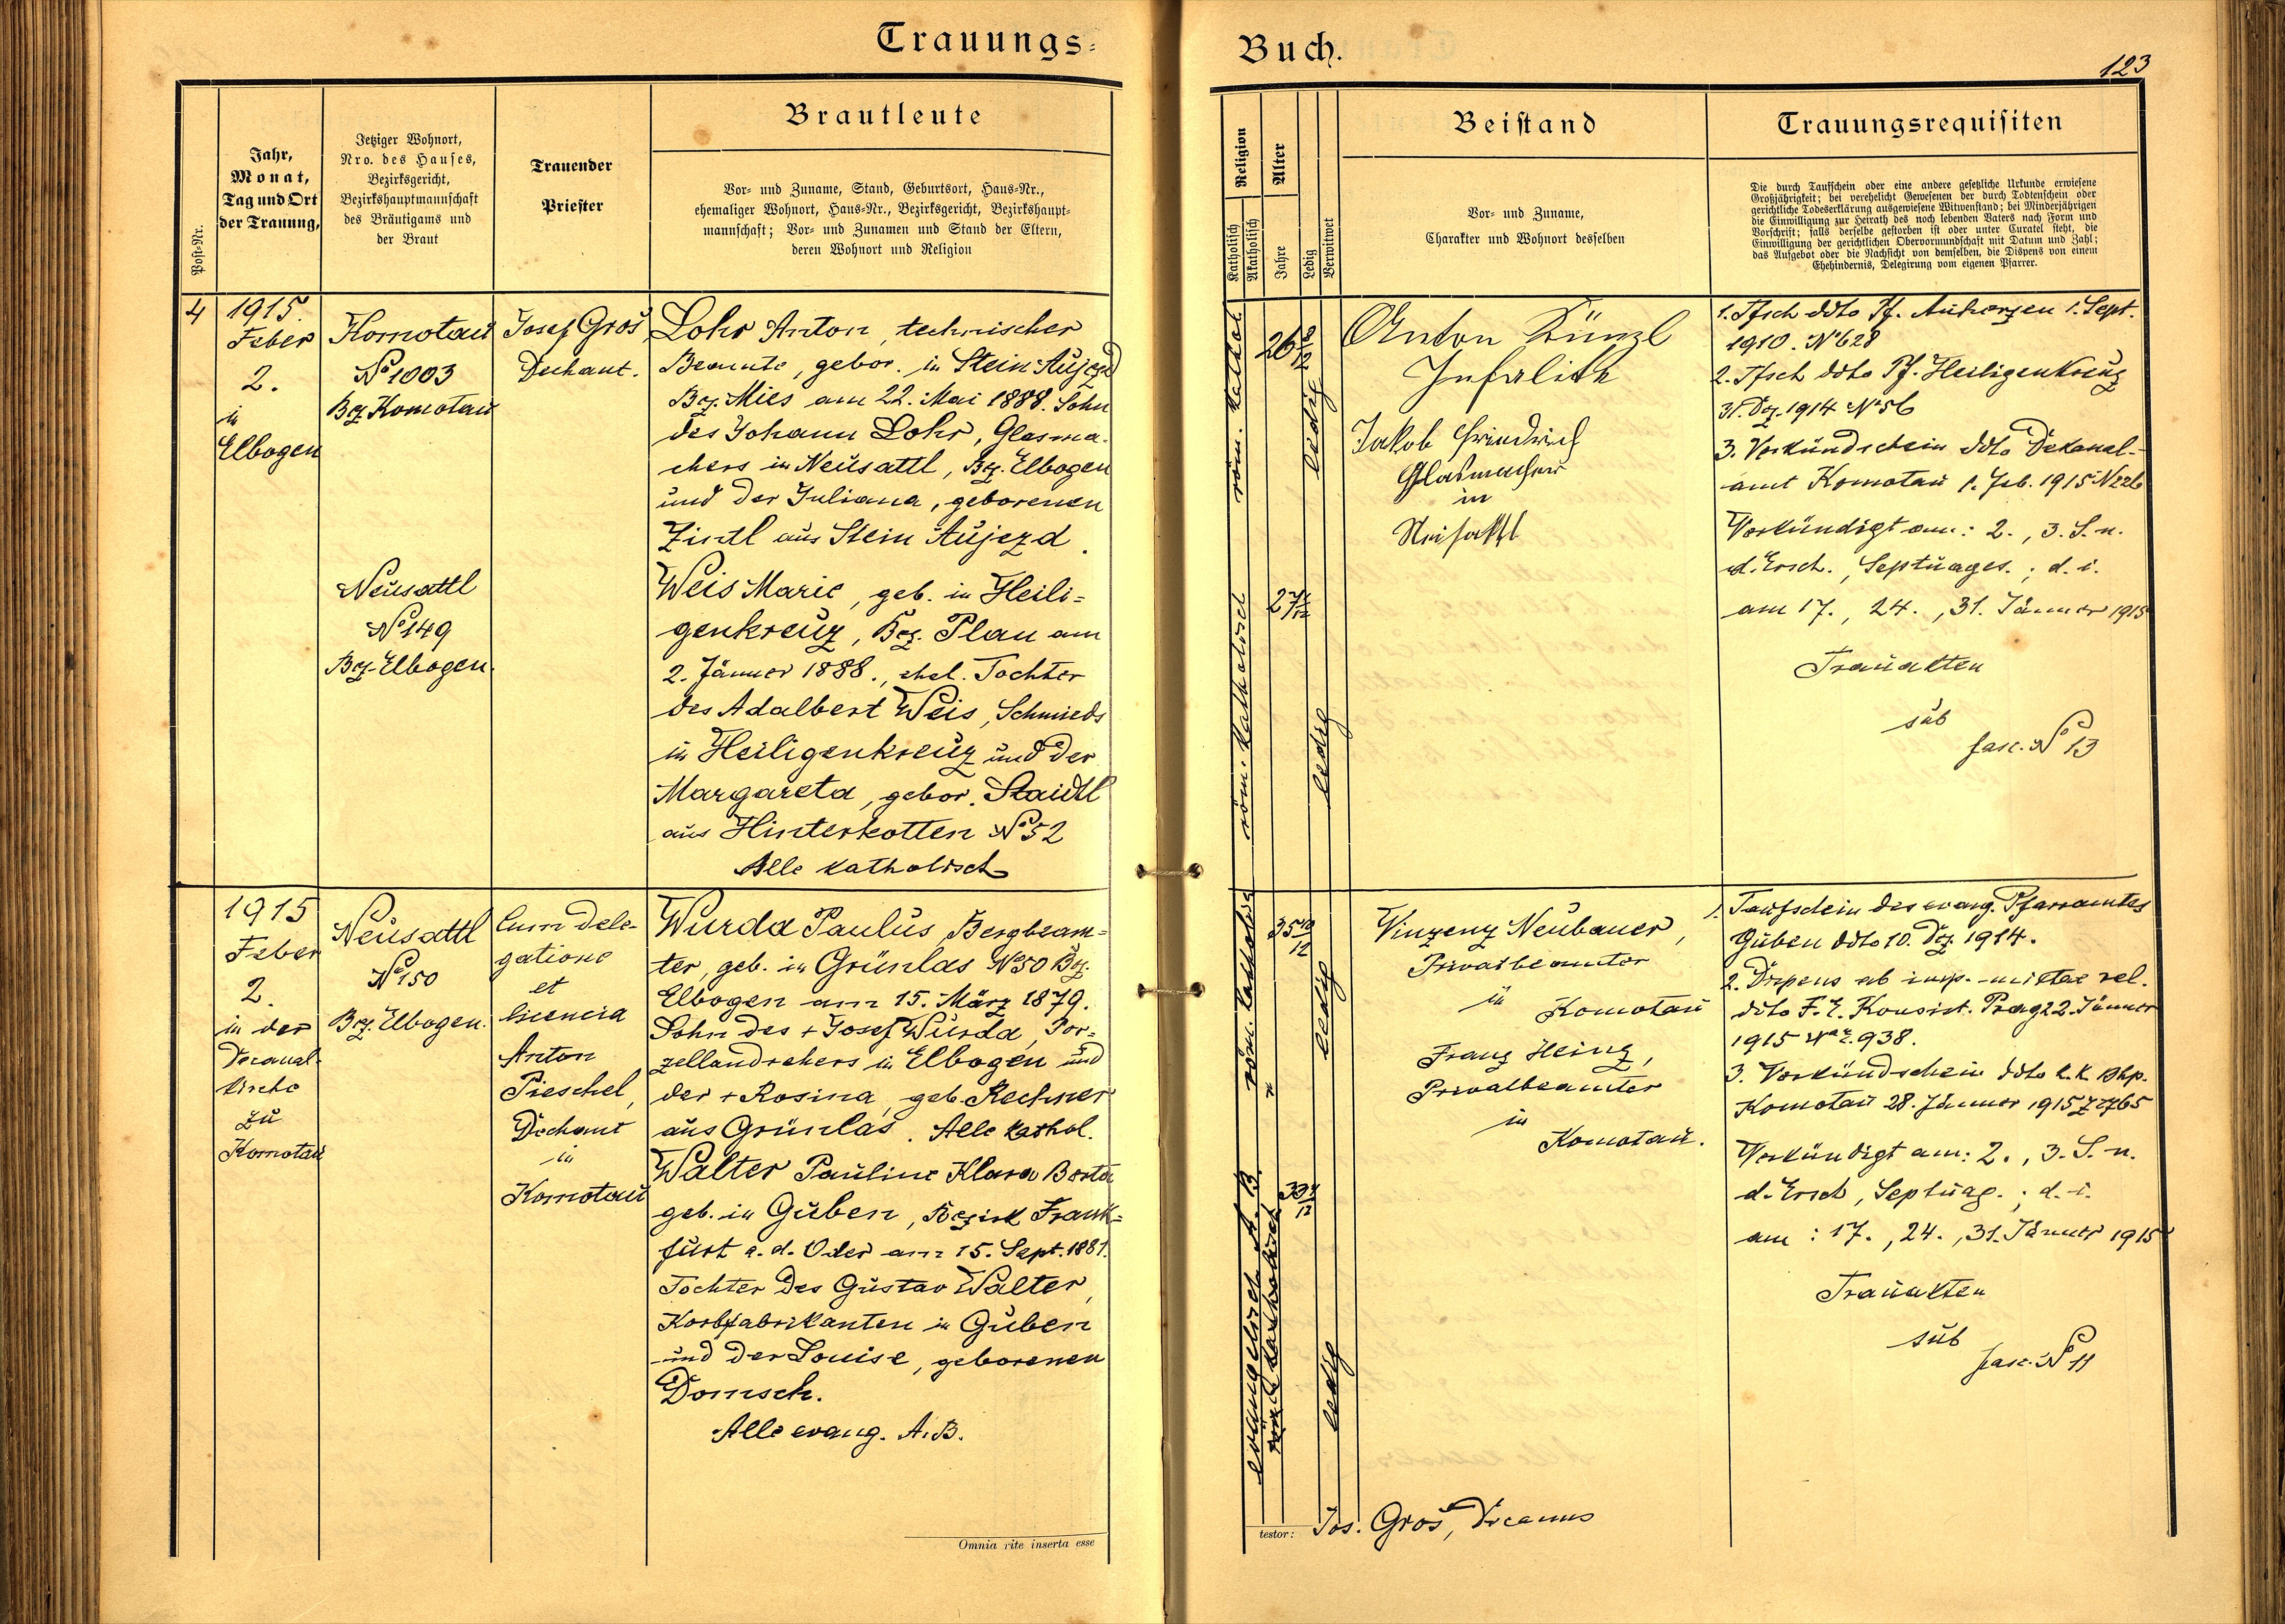 Trauungs-
Buch.
123
Post-Nr.
Jahr,
Monat,
Tag und Ort
der Trauung,
Jetziger Wohnort,
Nro. des Hauses,
Bezirksgericht,
Bezirkshauptmannschaft
des Bräutigams und
der Braut
Trauender
Priester
Brautleute
Vor- und Zuname, Stand, Geburtsort, Haus-Nr.,
ehemaliger Wohnort, Haus-Nr., Bezirksgericht, Bezirkshaupt-
mannschaft; Vor- und Zunamen und Stand der Eltern,
deren Wohnort und Religion
Religion
Katholisch
Akatholisch
Alter
Jahre
Ledig
Verwitwet
Beistand
Vor- und Zuname,
Charakter und Wohnort desselben
Trauungsrequisiten
Die durch Taufschein oder eine andere gesetzliche Urkunde erwiesene
Großjährigkeit; bei verehelicht Gewesenen der durch Todtenschein oder
gerichtliche Todeserklärung ausgewiesene Witwenstand; bei Minderjährigen
die Einwilligung zur Heirath des noch lebenden Vaters nach Form und
Vorschrift; falls derselbe gestorben ist oder unter Curatel steht, die
Einwilligung der gerichtlichen Obervormundschaft mit Datum und Zahl;
das Aufgebot oder die Nachsicht von demselben, die Dispens von einem
Ehehindernis, Delegirung vom eigenen Pfarrer.
4
1915.
Feber
2.
in
Elbogen
Komotau
No 1003
Bez. Komotau
Josef Groš
Dechant.
Lohr Anton, technischer
Beamte, gebor. in Stein Aujezd
Bez. Mies am 22. Mai 1888. Sohn
des Johann Lohr, Glasma-
chers in Neusattl, Bez. Elbogen
und der Juliana, geborenen
Zintl aus Stein Aujezd.
Neusattl
No 149
Bez. Elbogen.
Weis Marie, geb. in Heili-
genkreuz, Bez. Plan am
2. Jänner 1888., ehel. Tochter
des Adalbert Weis, Schmieds
in Heiligenkreuz und der
Margareta, gebor. Staidtl
aus Hinterkotten No 52
Alle katholisch
röm. kathol.
26 8/12
ledig
röm. katholisch
27 1/12
ledig
Anton Künzl
Jakob Friedrich
Glasmacher
in
Neusattl
1. Tfsch ddto Pf. 1. Sept.
1910. No 628
2. Tfsch ddto Pf. Heiligenkreuz
31. Dez. 1914 No 56
3. Verkündschein ddto Dekanal-
amt Komotau 1. Feb. 1915 N 226
Verkündigt am: 2., 3. S. n.
d. Ersch., Septuages.; d. i.
am 17., 24., 31. Jänner 1915
Trauakten
sub
fasc. No 13
1915
Feber
2.
in der
Decanal-
kirche
zu
Komotau
Neusattl
No 150
Bez. Elbogen.
Cum dele-
gatione
et
licencia
Anton
Pieschel,
Dechant
in
Komotau
Wurda Paulus, Bergbeam-
ter, geb. in Grünlas No 50 Bez.
Elbogen am 15. März 1879.
Sohn des + Josef Wurda, Por-
zellandrehers in Elbogen und
der + Rosina, geb. Rechner
aus Grünlas. Alle kathol.
Walter Pauline Klara Berta
geb. in Guben, Bezirk Frank-
furt a. d. Oder am 15. Sept. 1881.
Tochter des Gustav Walter,
Korbfabrikanten in Guben
und der Louise, geborenen
Domsch.
Alle evang. A. B.
röm. katholisch
35 10/12
ledig
evangelisch A. B.
ledig
Vinzenz Neubauer,
Privatbeamter
in
Komotau
Franz Heinz,
Privatbeamter
in
Komotau.
1. Taufschein des evang. Pfarramtes
Guben ddto 10. Dez. 1914.
2. Dispens ab imp. mixtae rel.
ddto F. E. Konsist. Prag 22. Jänner
1915 938.
3. Verkündschein ddto k. k. Bhp.
Komotau 28. Jänner 1915 Z 2765
Verkündigt am: 2., 3. S. n.
d. Ersch, Septuag.; d. i.
am: 17., 24., 31. Jänner 1915
Trauakten
sub
fasc. No 11
Omnia rite inserta esse
testor: Jos. Groš, Decanus